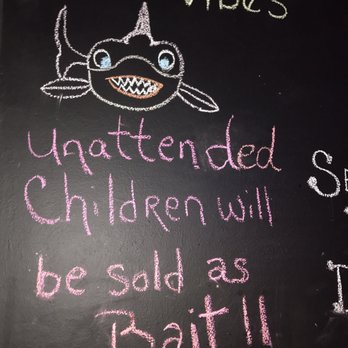 Vibes
Unattended
Children will
be sold as
Bait!!